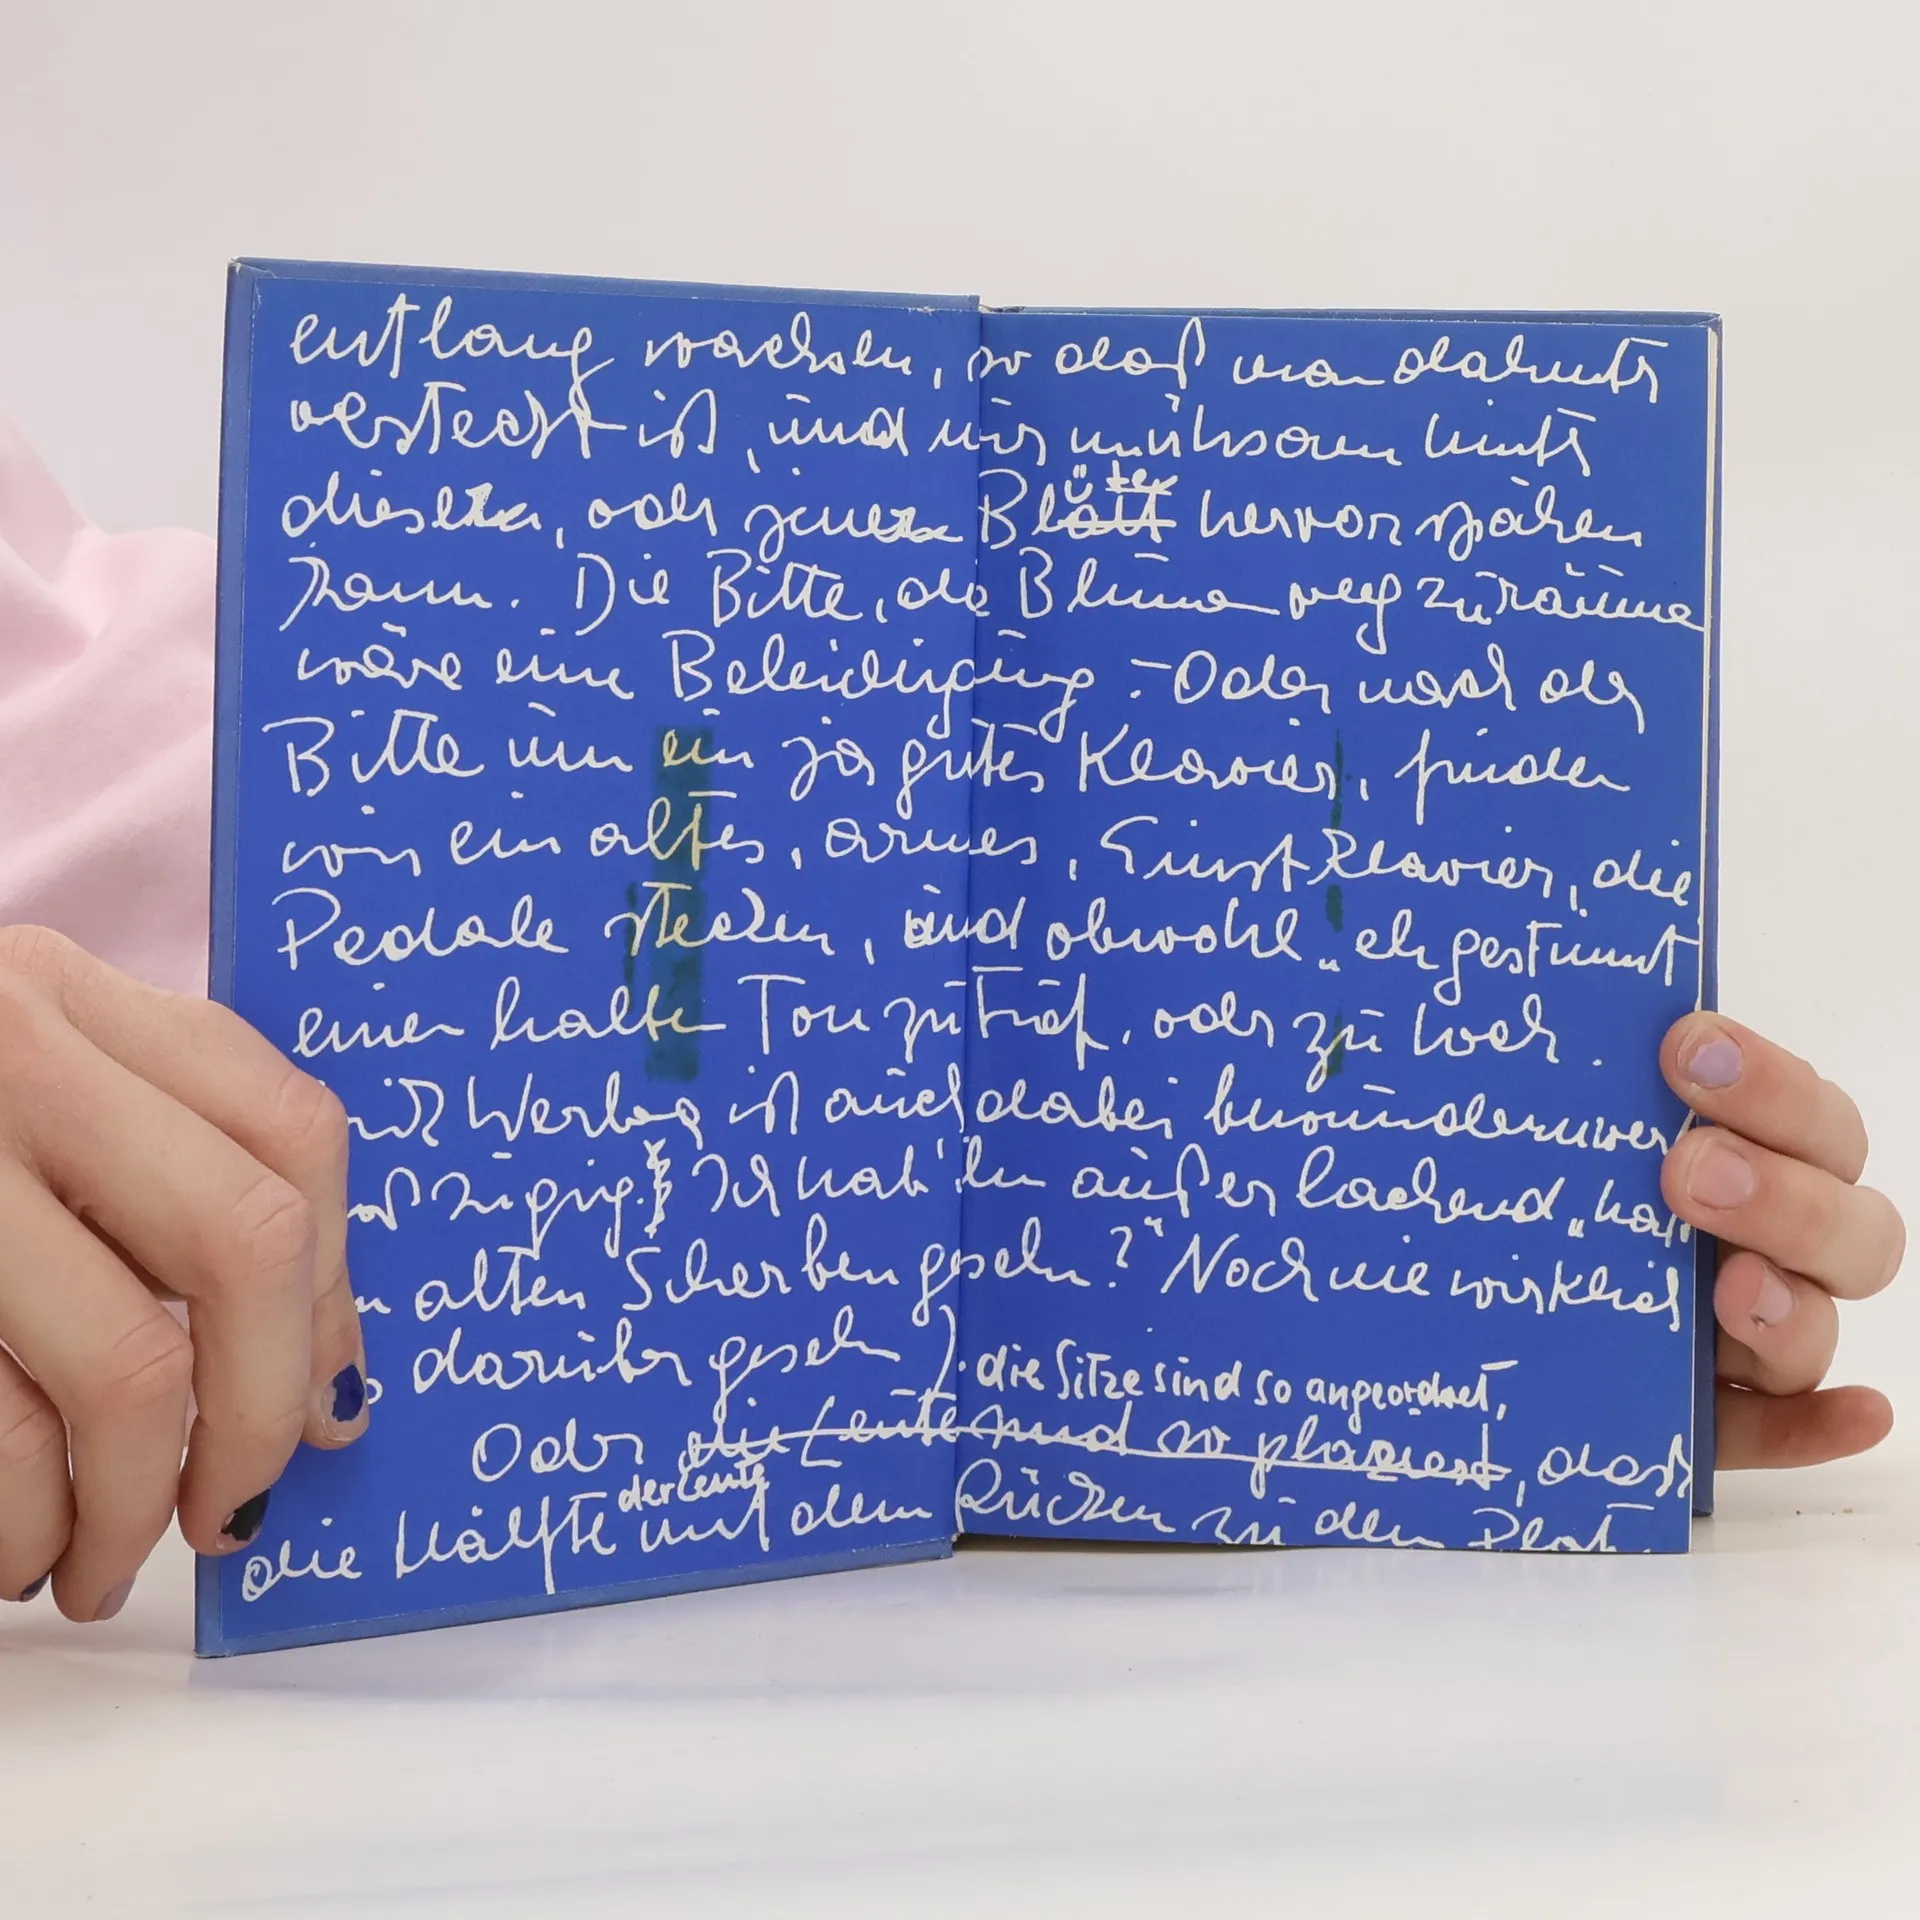 entlang wachsen, so daß man dahinter
versteckt ist, und nur mühsam hinter
dieser, oder jener Blüte hervor spähen
kann. Die Bitte, die Blumen wegzuräumen
wäre eine Beleidigung. – Oder nach der
Bitte um ein gutes Klavier, finden
wir ein altes, armes, Einstklavier, die
Pedale stecken, und obwohl „eh gestimmt
einen halben Ton zu tief, oder zu hoch.
Werba ist auch dabei bewundernswert
zügig. Ich hab' ihn außer lachend „hat
alten Scherben gesehn?" Noch nie wirklich
darüber gesehn). die Sitze sind so angeordnet,
Oder die Leute sind so plaziert, daß
die Hälfte der Leute mit dem Rücken zu den